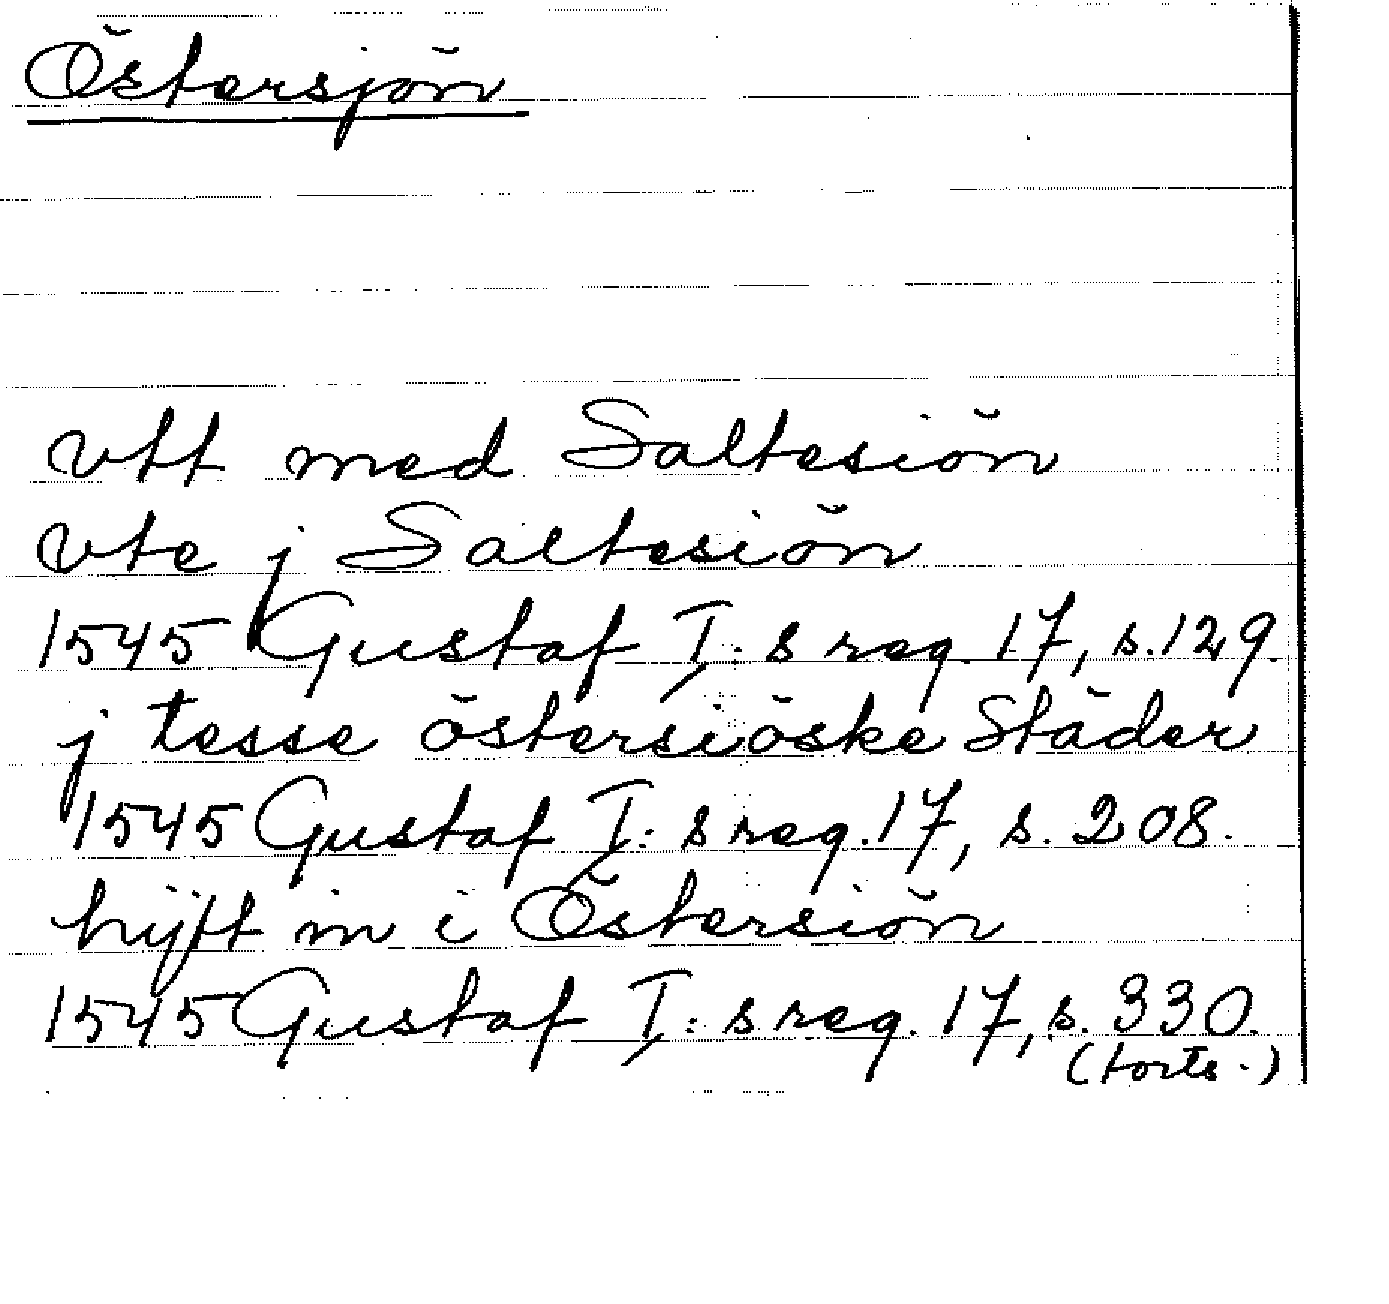 Östersjön
vtt med Saltesiön
vte j Saltesiön
1545 Gustaf I: s reg. 17, s. 129.
j tesse östersiöske Städer
1545 Gustaf I: s reg. 17, s. 208.
in i Östersiön
1545 Gustaf I: s reg. 17, s. 330.
(forts.)